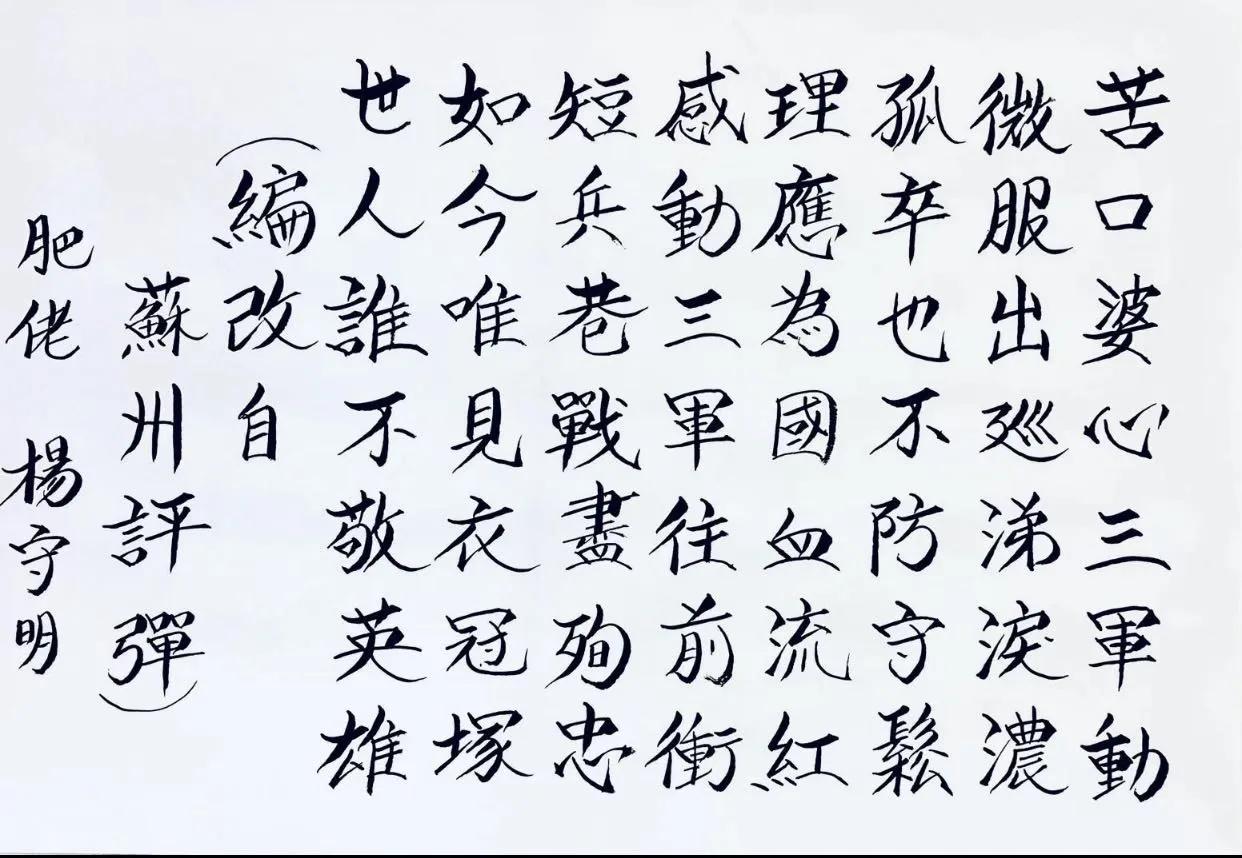 苦口婆心三軍動
微服出巡涕淚濃
孤卒也不防守鬆
理應為國血流紅
感動三軍往前衝
短兵巷戰盡殉忠
如今唯見衣冠塚
世人誰不敬英雄
（編改自
蘇州評彈）
肥佬 楊守明